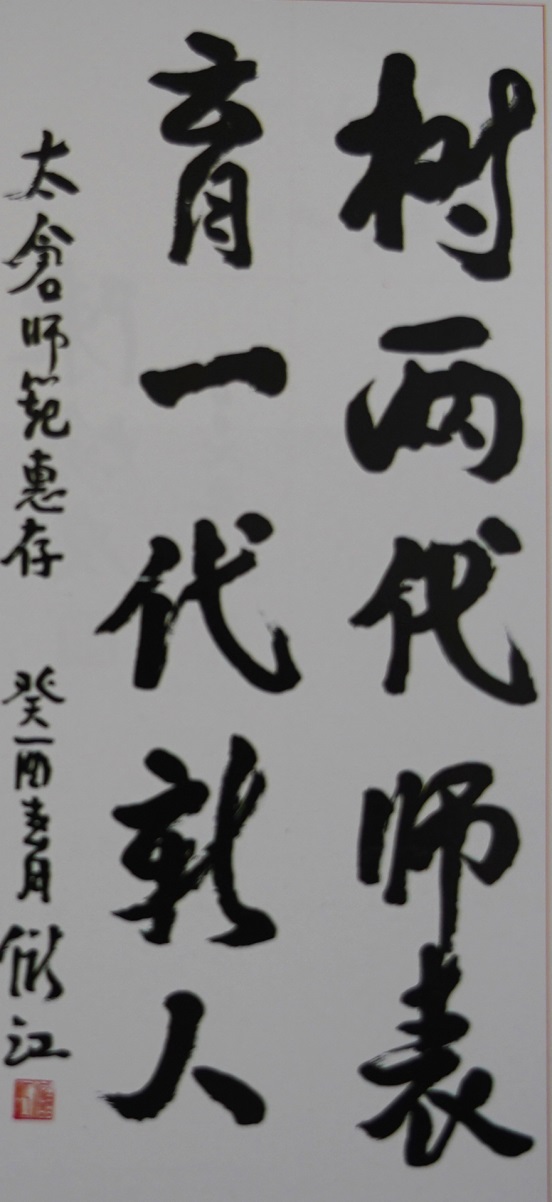 树两代师表
育一代新人
太倉师範惠存 癸酉春月 江